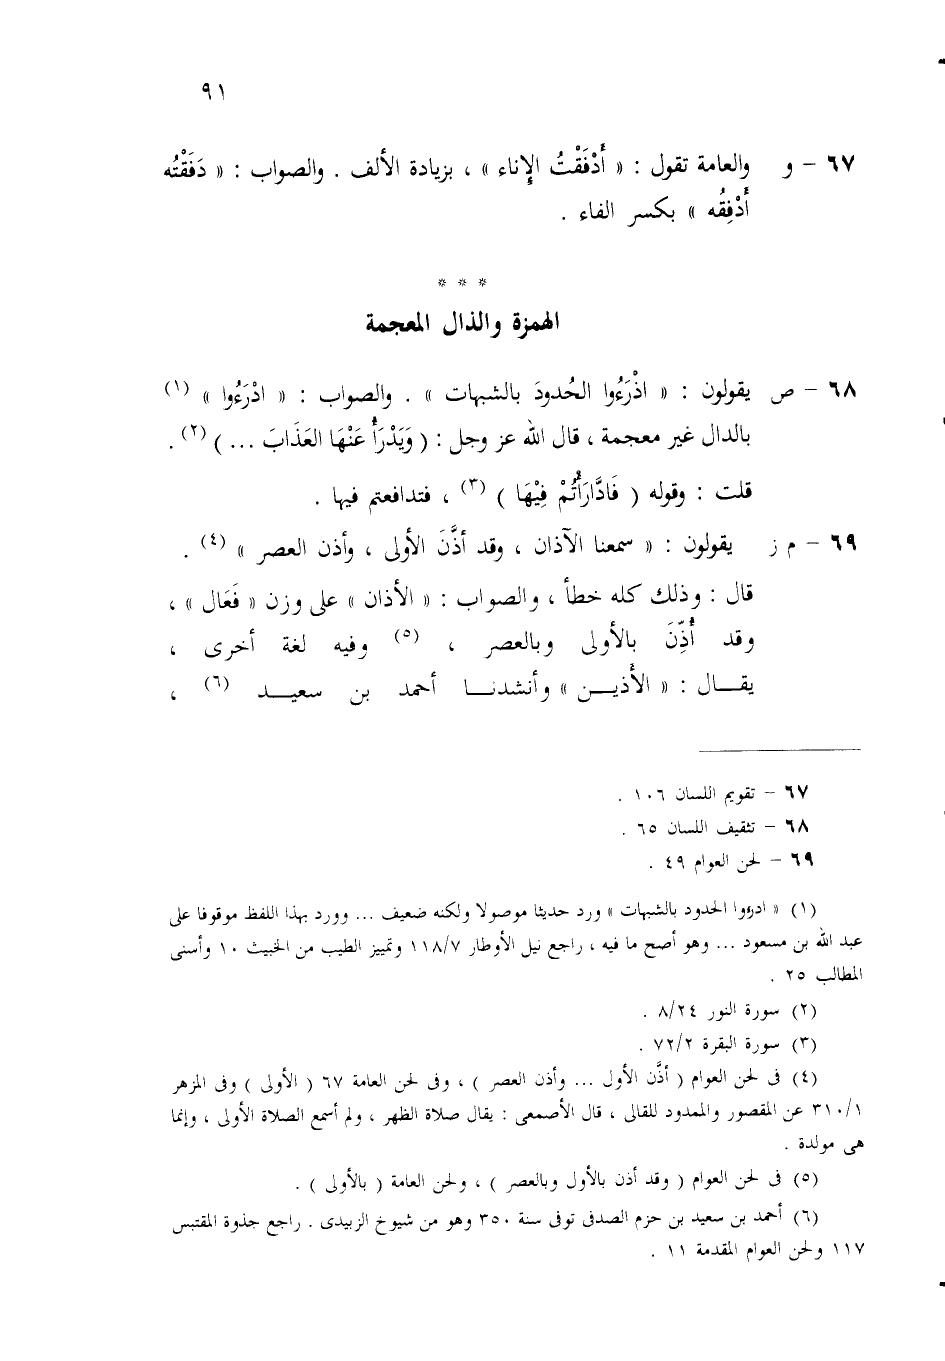 ٩١
٦٧ – و والعامة تقول : « أَدْفَقْتُ الإِناء » ، بزيادة الألف . والصواب : « دَفَقْتُه
أَدْفِقُه » بكسر الفاء .
* * *
الهمزة والذال المعجمة
٦٨ – ص يقولون : « اذْرَءُوا الحُدودَ بالشبهات » . والصواب : « ادْرَءُوا » (١)
بالدال غير معجمة ، قال الله عز وجل : ( وَيَدْرَأُ عَنْهَا العَذَابَ ... ) (٢) .
قلت : وقوله ( فَادَّارَأْتُمْ فِيْهَا ) (٣) ، فتدافعتم فيها .
٦٩ – م ز يقولون : « سمعنا الآذان ، وقد أذَّنَ الأولى ، وأذن العصر » (٤) .
قال : وذلك كله خطأ ، والصواب : « الأذان » على وزن « فَعَال » ،
وقد أُذِّنَ بالأولى وبالعصر ، (٥) وفيه لغة أخرى ،
يقال : « الأَذين » وأنشدنا أحمد بن سعيد (٦) ،
٦٧ – تقويم اللسان ١٠٦ .
٦٨ – تثقيف اللسان ٦٥ .
٦٩ – لحن العوام ٤٩ .
(١) « ادرءوا الحدود بالشبهات » ورد حديثا موصولا ولكنه ضعيف ... وورد بهذا اللفظ موقوفا على
عبد الله بن مسعود ... وهو أصح ما فيه ، راجع نيل الأوطار ١١٨/٧ وتمييز الطيب من الخبيث ١٠ وأسنى
المطالب ٢٥ .
(٢) سورة النور ٨/٢٤ .
(٣) سورة البقرة ٧٢/٢ .
(٤) فى لحن العوام ( أذَّن الأول ... وأذن العصر ) ، وفى لحن العامة ٦٧ ( الأولى ) وفى المزهر
٣١٠/١ عن المقصور والممدود للقالى ، قال الأصمعى : يقال صلاة الظهر ، ولم أسمع الصلاة الأولى ، وإنما
هى مولدة .
(٥) فى لحن العوام ( وقد أذن بالأول وبالعصر ) ، ولحن العامة ( بالأولى ) .
(٦) أحمد بن سعيد بن حزم الصدفى توفى سنة ٣٥٠ وهو من شيوخ الزبيدى . راجع جذوة المقتبس
١١٧ ولحن العوام المقدمة ١١ .